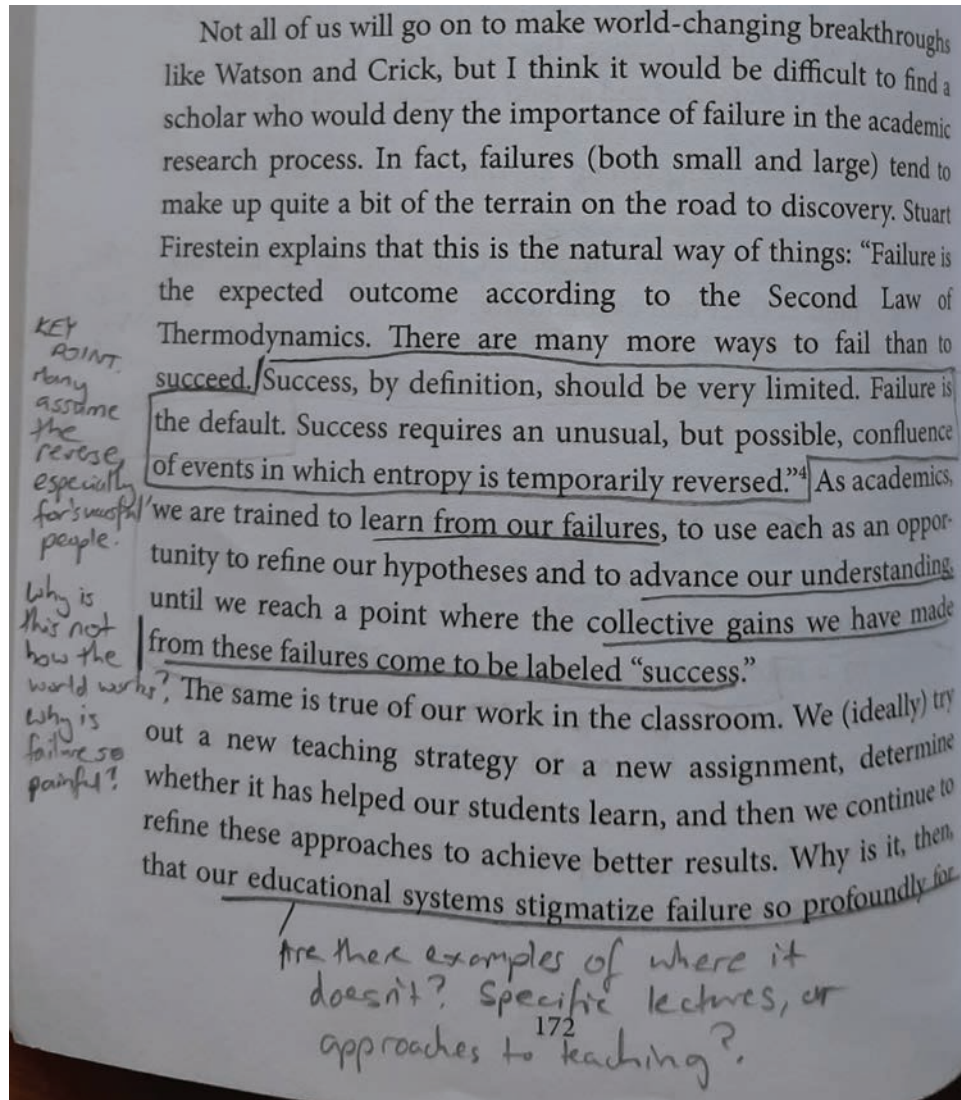 Not all of us will go on to make world-changing breakthroughs
like Watson and Crick, but I think it would be difficult to find a
scholar who would deny the importance of failure in the academic
research process. In fact, failures (both small and large) tend to
make up quite a bit of the terrain on the road to discovery. Stuart
Firestein explains that this is the natural way of things: “Failure is
the expected outcome according to the Second Law of
Thermodynamics. There are many more ways to fail than to
succeed. Success, by definition, should be very limited. Failure is
the default. Success requires an unusual, but possible, confluence
of events in which entropy is temporarily reversed.”4 As academics,
we are trained to learn from our failures, to use each as an oppor-
tunity to refine our hypotheses and to advance our understanding,
until we reach a point where the collective gains we have made
from these failures come to be labeled “success.”
The same is true of our work in the classroom. We (ideally) try
out a new teaching strategy or a new assignment, determine
whether it has helped our students learn, and then we continue to
refine these approaches to achieve better results. Why is it, then,
that our educational systems stigmatize failure so profoundly for
KEY
POINT.
Many
assume
the
reverse,
especially
for
people.
Why is
this not
how the
world works?
Why is
failure so
painful?
Are there examples of where it
doesn't? Specific lectures, or
approaches to teaching?
172